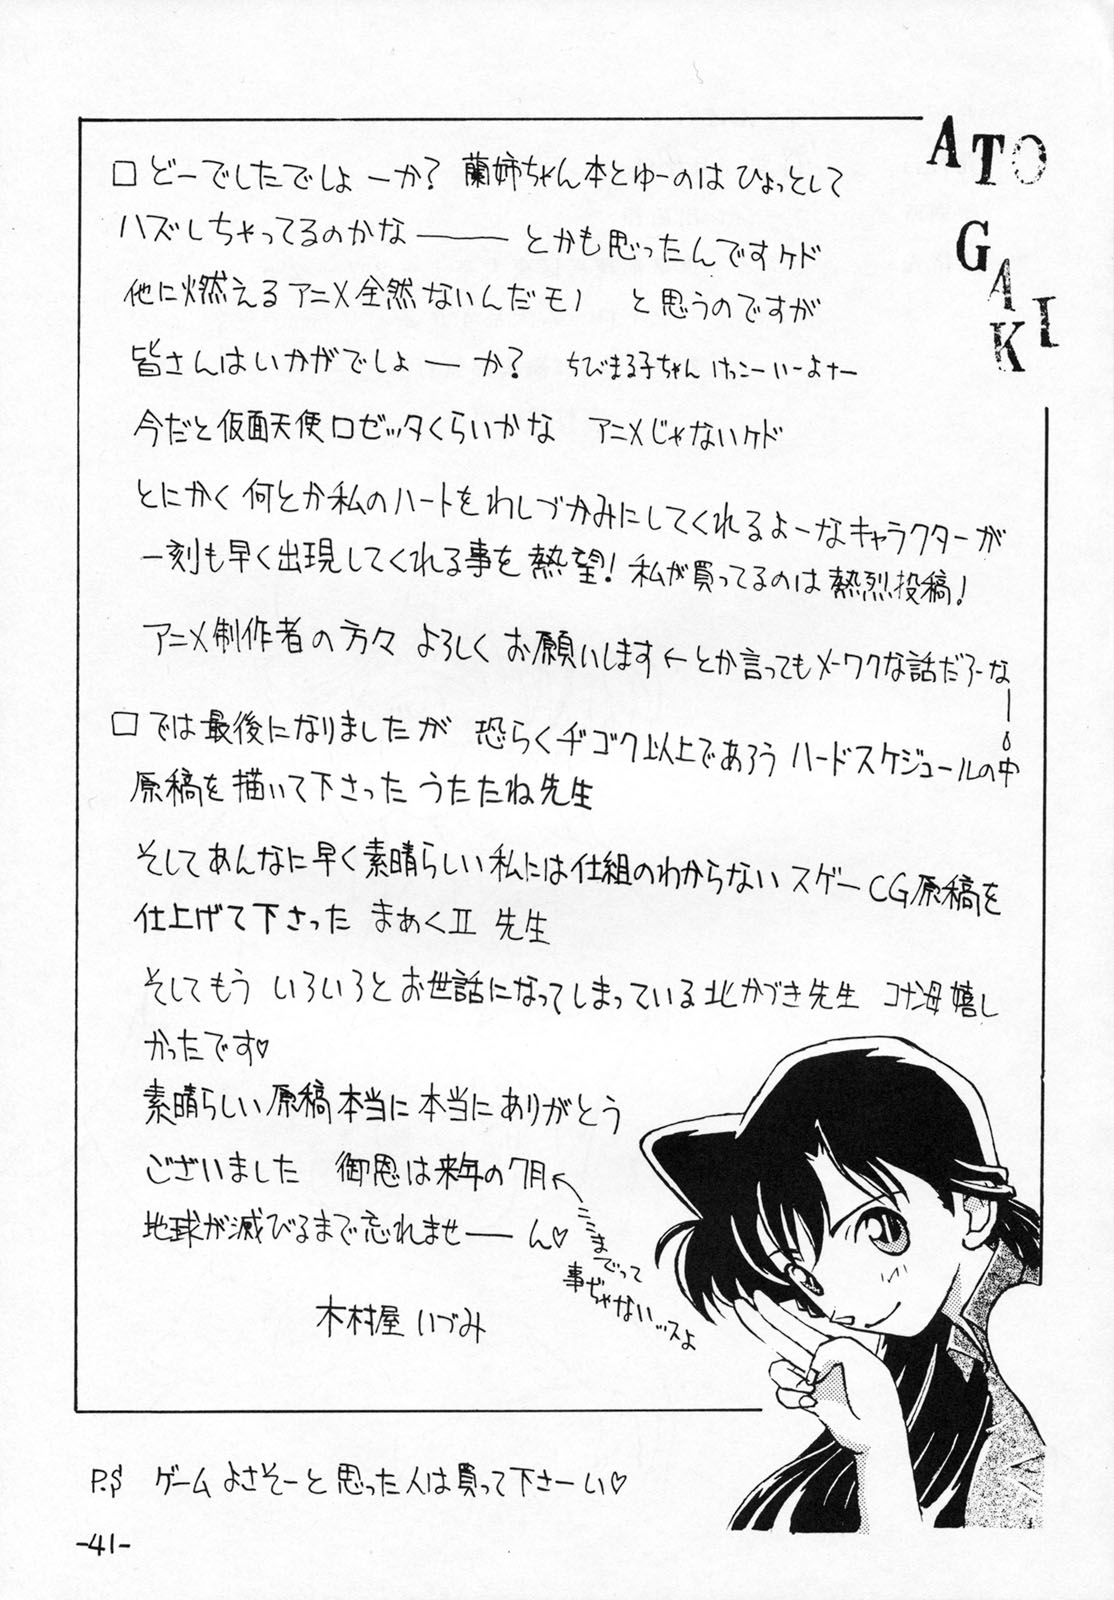 ATO
GAKI
□どーでしたでしょーか? 蘭姉ちゃん本とゆーのは ひょっとして
ハズしちゃってるのかな―― とかも思ったんですケド
他に燃えるアニメ全然ないんだモノ と思うのですが
皆さんはいかがでしょーか? ちびまる子ちゃん けっこーいーよナー
今だと仮面天使ロゼッタくらいかな アニメじゃないケド
とにかく何とか私のハートをわしづかみにしてくれるよーなキャラクターが
一刻も早く出現してくれる事を熱望! 私が買ってるのは熱烈投稿!
アニメ制作者の方々 よろしく お願いします ← とか言ってもメーワクな話だろーなー
□では最後になりましたが 恐らくヂゴク以上であろう ハードスケジュールの中
原稿を描いて下さった うたたね先生
そしてあんなに早く素晴らしい私には仕組のわからない スゲー CG原稿を
仕上げて下さった まあくⅡ 先生
そしてもう いろいろとお世話になってしまっている北かづき先生 コナン母嬉し
かったです♡
素晴らしい原稿本当に本当にありがとう
ございました 御恩は来年の7月←
地球が滅びるまで忘れませ――ん♡
ここまでって
事ぢゃない…ッスよ
木村屋 いづみ
P.S ゲームよさそーと思った人は買って下さーい♡
-41-